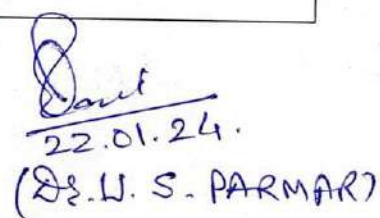 22.01.24.
(Dr. U. S. PARMAR)